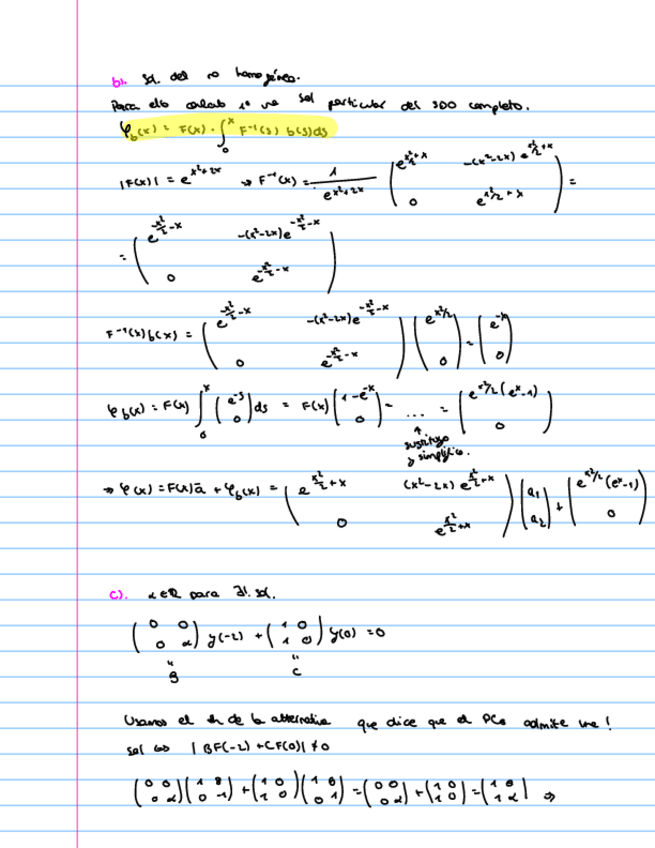 b). Sol. del no homogéneo.
Para ello calculo 1º una sol particular del SDO completo.
φ_b(x) = F(x) · ∫_0^x F⁻¹(s) b(s) ds
|F(x)| = e^{x²+2x} ⇒ F⁻¹(x) = 1/e^{x²+2x} ( e^{x²/2+x}  -(x²-2x) e^{x²/2+x} ; 0  e^{x²/2+x} ) =
= ( e^{-x²/2-x}  -(x²-2x)e^{-x²/2-x} ; 0  e^{-x²/2-x} )
F⁻¹(x)b(x) = ( e^{-x²/2-x}  -(x²-2x)e^{-x²/2-x} ; 0  e^{-x²/2-x} ) ( e^{x²/2} ; 0 ) = ( e^{-x} ; 0 )
φ_b(x) = F(x) ∫_0^x ( e^{-s} ; 0 ) ds = F(x) ( 1-e^{-x} ; 0 ) = ... = ( e^{x²/2}(e^x-1) ; 0 )
↑
sustituyo
y simplifico.
⇒ φ(x) = F(x)ā + φ_b(x) = ( e^{x²/2+x}  (x²-2x) e^{x²/2+x} ; 0  e^{x²/2+x} ) ( a₁ ; a₂ ) + ( e^{x²/2}(e^x-1) ; 0 )
c). α∈ℝ para ∃! sol.
( 0 0 ; 0 α ) y(-2) + ( 1 0 ; 1 0 ) y(0) = 0
" "
B C
Usamos el th de la alternativa que dice que el PCo admite una !
sol ⇔ | BF(-2) + CF(0) | ≠ 0
( 0 0 ; 0 α ) ( 1 8 ; 0 1 ) + ( 1 0 ; 1 0 ) ( 1 0 ; 0 1 ) = ( 0 0 ; 0 α ) + ( 1 0 ; 1 0 ) = ( 1 0 ; 1 α ) ⇒